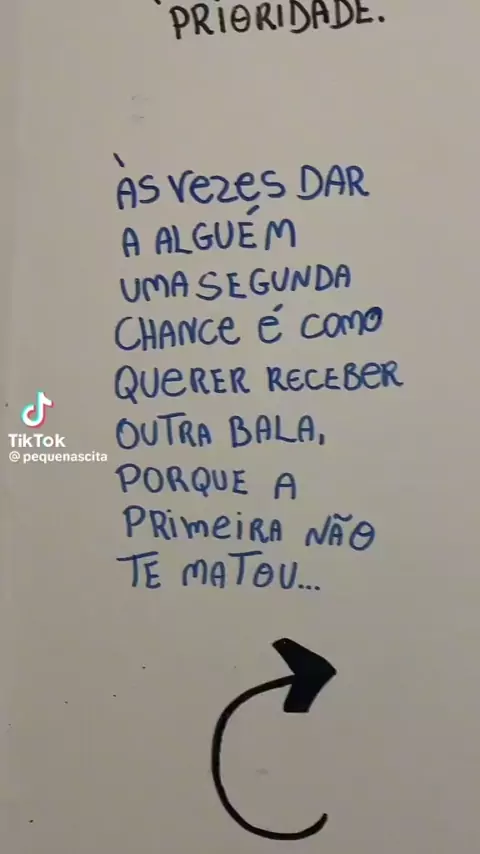 PRIORIDADE.
ÀS VEZES DAR
A ALGUÉM
UMA SEGUNDA
CHANCE É COMO
QUERER RECEBER
OUTRA BALA,
PORQUE A
PRIMEIRA NÃO
TE MATOU...
TikTok
@pequenascita